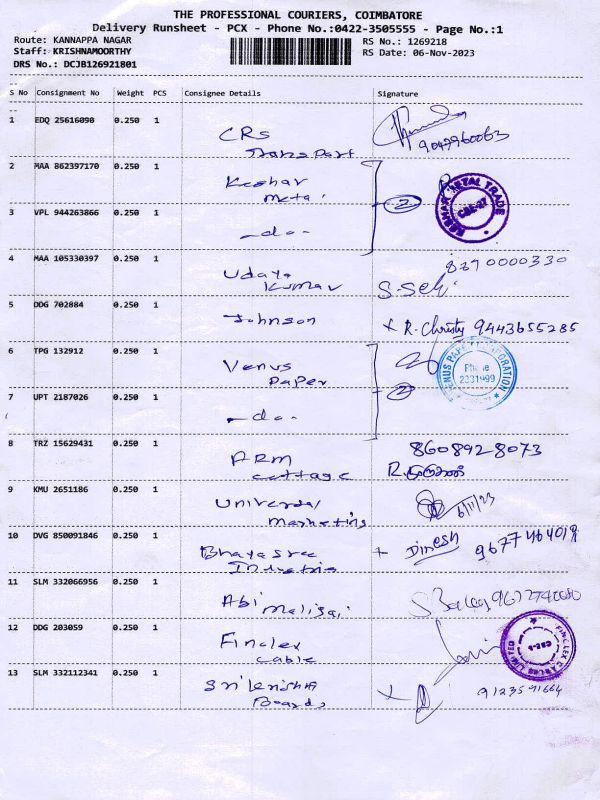 THE PROFESSIONAL COURIERS, COIMBATORE
Delivery Runsheet - PCX - Phone No.:0422-3505555 - Page No.:1
Route: KANNAPPA NAGAR RS No.: 1269218
Staff: KRISHNAMOORTHY RS Date: 06-Nov-2023
DRS No.: DCJB126921801
S No Consignment No Weight PCS Consignee Details Signature
1 EDQ 25616090 0.250 1 CRS
Transport 9047960063
2 MAA 862397170 0.250 1 Keshar
Metal 2 KESHAR METAL TRADE CBE-27
3 VPL 944263866 0.250 1 -do-
4 MAA 105330397 0.250 1 Udaya
Kumar S.Selvi 8270000330
5 DDG 702884 0.250 1 Johnson x R. Christy 9443655285
6 TPG 132912 0.250 1 Venus
Paper VENUS PAPER Phone 2331999
7 UPT 2187026 0.250 1 -do- 2
8 TRZ 15629431 0.250 1 ARM
Cottage 8608928073
9 KMU 2651186 0.250 1 Universal
Marketing 6/11/23
10 DVG 850091846 0.250 1
Industries + Dinesh 9677464019
11 SLM 332066956 0.250 1 Abi
Maligai
12 DDG 203059 0.250 1 Finolex
Cable FINOLEX CABLES LIMITED
13 SLM 332112341 0.250 1 Sri Krishna
Boards x 9123591664